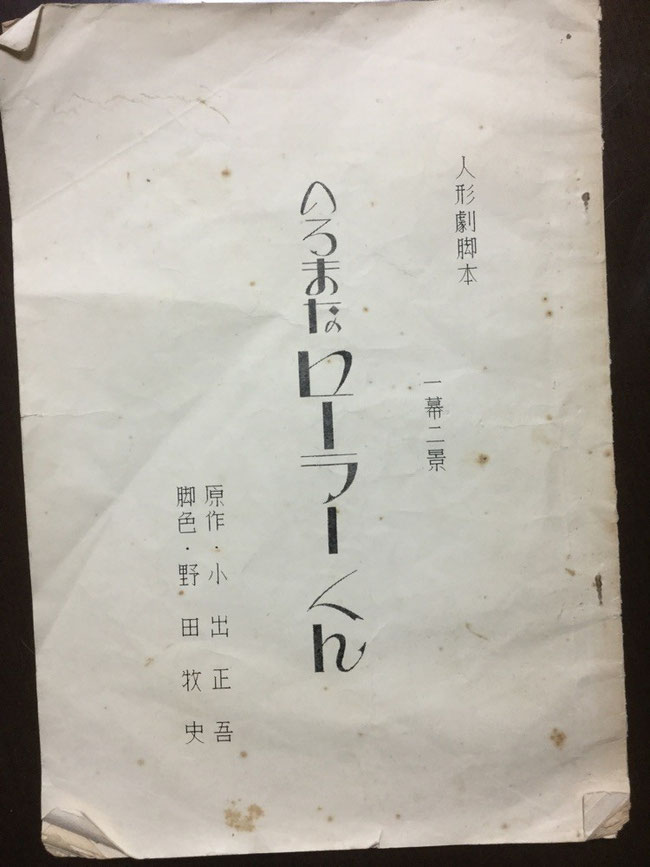 人形劇脚本
一幕二景
のろまなローラーくん
原作・小出正吾
脚色・野田牧史